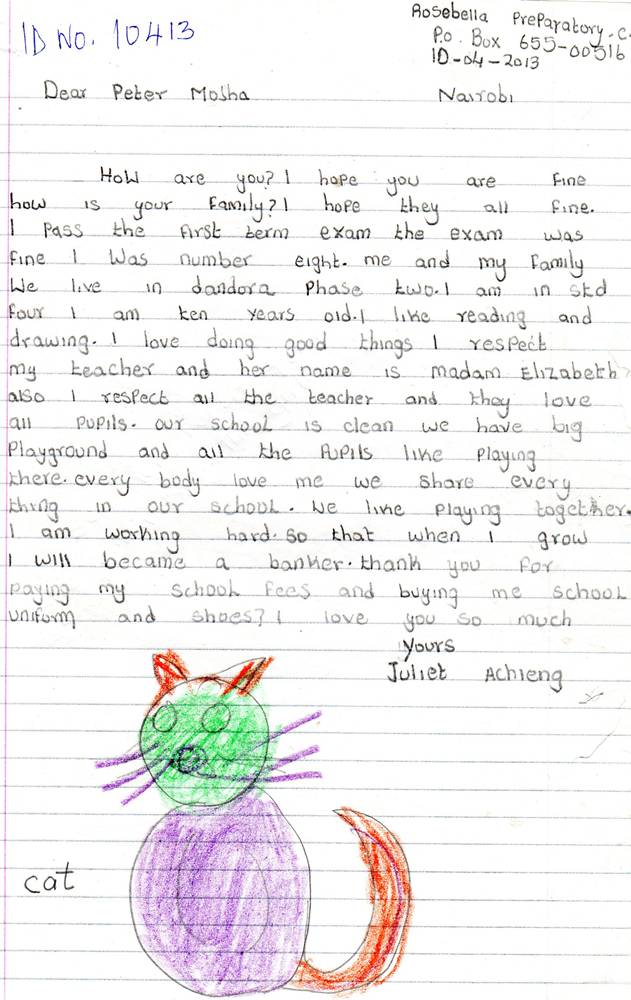 ID No. 10413
Rosebella Preparatory.C.
P.o. Box 655-00516
10-04-2013
Dear Peter Mosha Nairobi
How are you? I hope you are fine
how is your family? I hope they all fine.
I pass the first term exam the exam was
fine I was number eight. me and my family
We live in dandora phase two. I am in std
four I am ten years old. I like reading and
drawing. I love doing good things I respect
my teacher and her name is madam Elizabeth
also I respect all the teacher and they love
all pupils. our school is clean we have big
playground and all the pupils like playing
there. every body love me we share every
thing in our school. We like playing together.
I am working hard. so that when I grow
I will became a banker. thank you for
paying my school fees and buying me school
uniform and shoes? I love you so much
yours
Juliet Achieng
cat